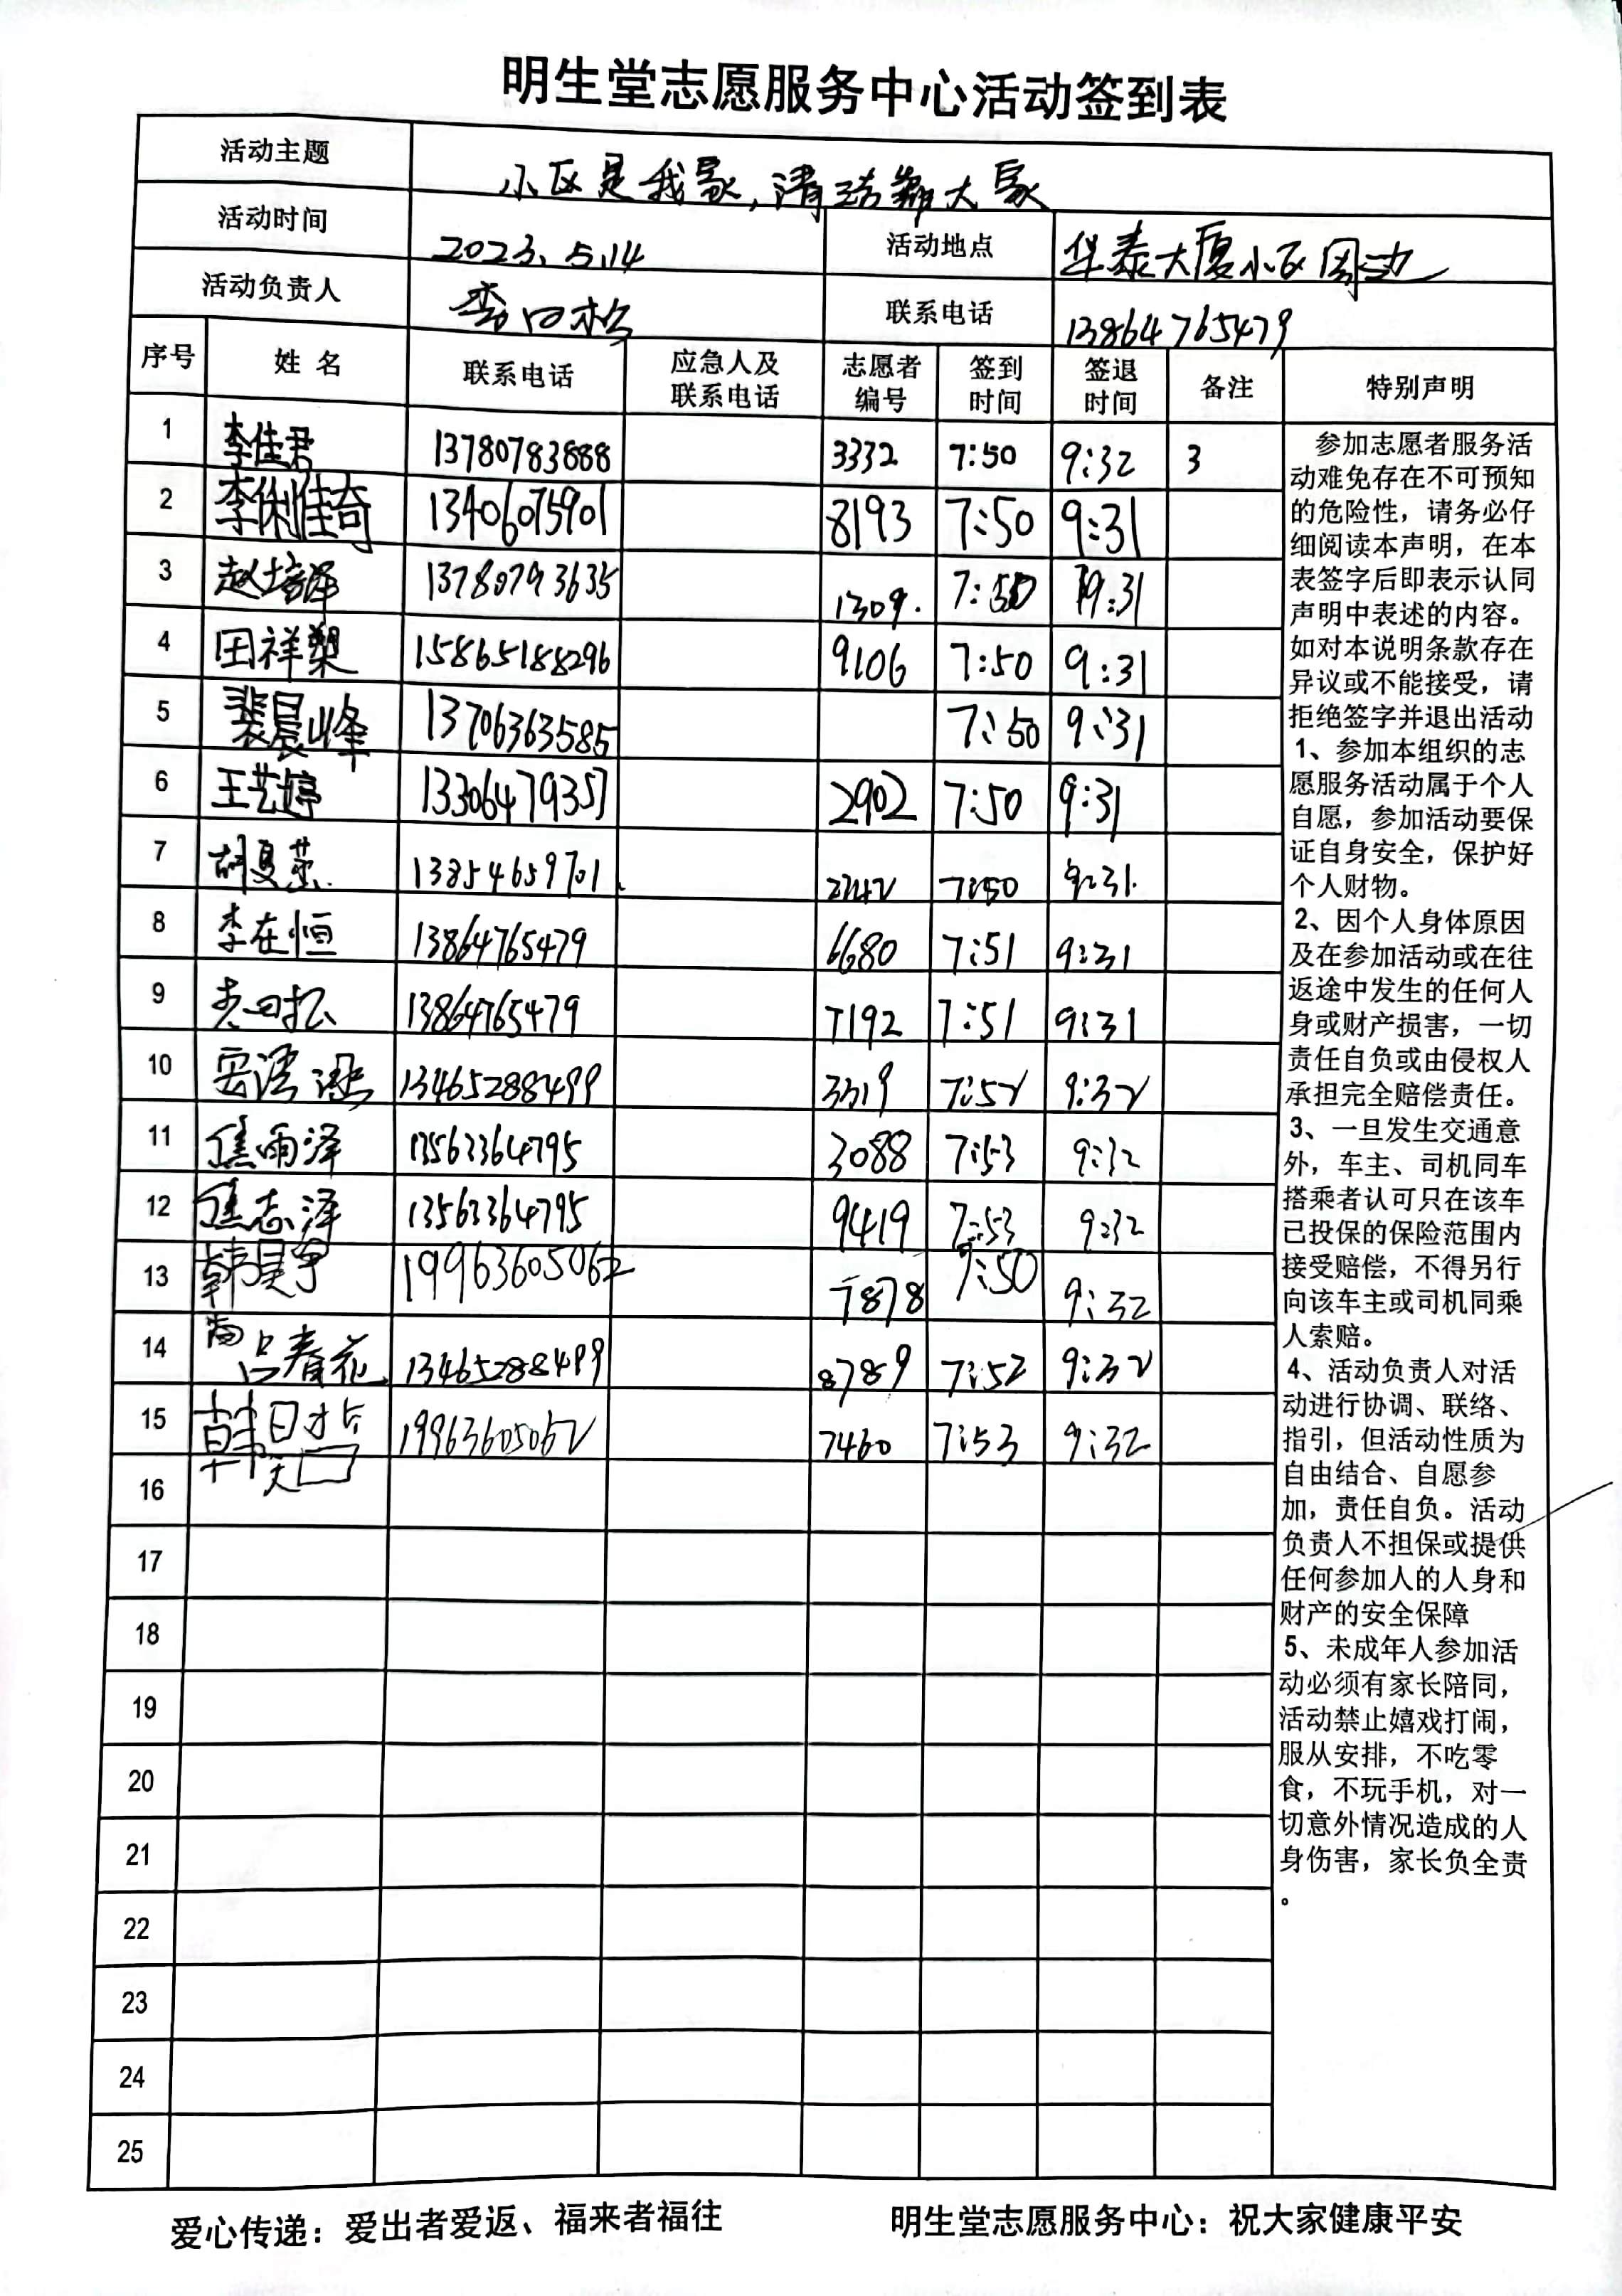 明生堂志愿服务中心活动签到表
活动主题 小区是我家,清洁靠大家
活动时间 2023.5.14 活动地点 华泰大厦小区周边
活动负责人 联系电话 13864765479
序号 姓名 联系电话 应急人及联系电话 志愿者编号 签到时间 签退时间 备注 特别声明
1 李佳君 13780783888 3332 7:50 9:32 3
2 李俐佳奇 13406075901 8193 7:50 9:31
3 赵培泽 13780793635 1309. 7:50 9:31
4 田祥槊 15865188296 9106 7:50 9:31
5 裴晨峰 13706363585 7:50 9:31
6 王艺婷 13306479357 2902 7:50 9:31
7 胡夏燕 13854659701 2242 7:50 9:31.
8 李在恒 13864765479 6680 7:51 9:31
9 13864765479 7192 7:51 9:31
10 13465288499 3319 7:52 9:32
11 焦雨泽 13563364795 3088 7:53 9:32
12 焦志泽 13563364795 9419 7:53 9:32
13 19963605062 7878 7:50 9:32
14 吕春花 13465288499 8789 7:52 9:32
15 19963605062 7460 7:53 9:32
16
17
18
19
20
21
22
23
24
25
参加志愿者服务活
动难免存在不可预知
的危险性，请务必仔
细阅读本声明，在本
表签字后即表示认同
声明中表述的内容。
如对本说明条款存在
异议或不能接受，请
拒绝签字并退出活动
1、参加本组织的志
愿服务活动属于个人
自愿，参加活动要保
证自身安全，保护好
个人财物。
2、因个人身体原因
及在参加活动或在往
返途中发生的任何人
身或财产损害，一切
责任自负或由侵权人
承担完全赔偿责任。
3、一旦发生交通意
外，车主、司机同车
搭乘者认可只在该车
已投保的保险范围内
接受赔偿，不得另行
向该车主或司机同乘
人索赔。
4、活动负责人对活
动进行协调、联络、
指引，但活动性质为
自由结合、自愿参
加，责任自负。活动
负责人不担保或提供
任何参加人的人身和
财产的安全保障
5、未成年人参加活
动必须有家长陪同，
活动禁止嬉戏打闹，
服从安排，不吃零
食，不玩手机，对一
切意外情况造成的人
身伤害，家长负全责
。
爱心传递：爱出者爱返、福来者福往 明生堂志愿服务中心：祝大家健康平安